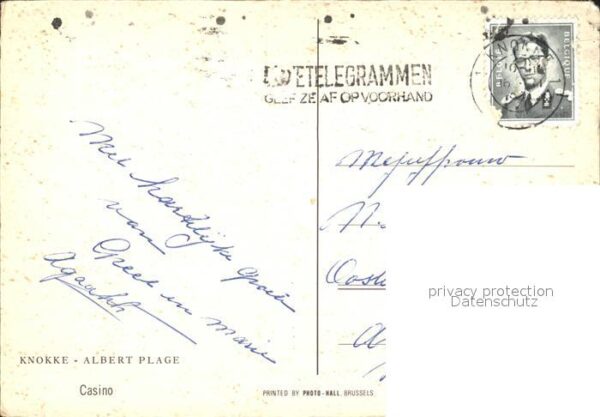 KNOKKE
BELGIE-BELGIQUE
TELEGRAMMEN
GEEF ZE AF OP VOORHAND
Met hartelijke groeten
van
Greet en Marie
Agaatha
Mejuffrouw
N.
Oost
privacy protection
Datenschutz
KNOKKE - ALBERT PLAGE
Casino
PRINTED BY PHOTO-HALL, BRUSSELS